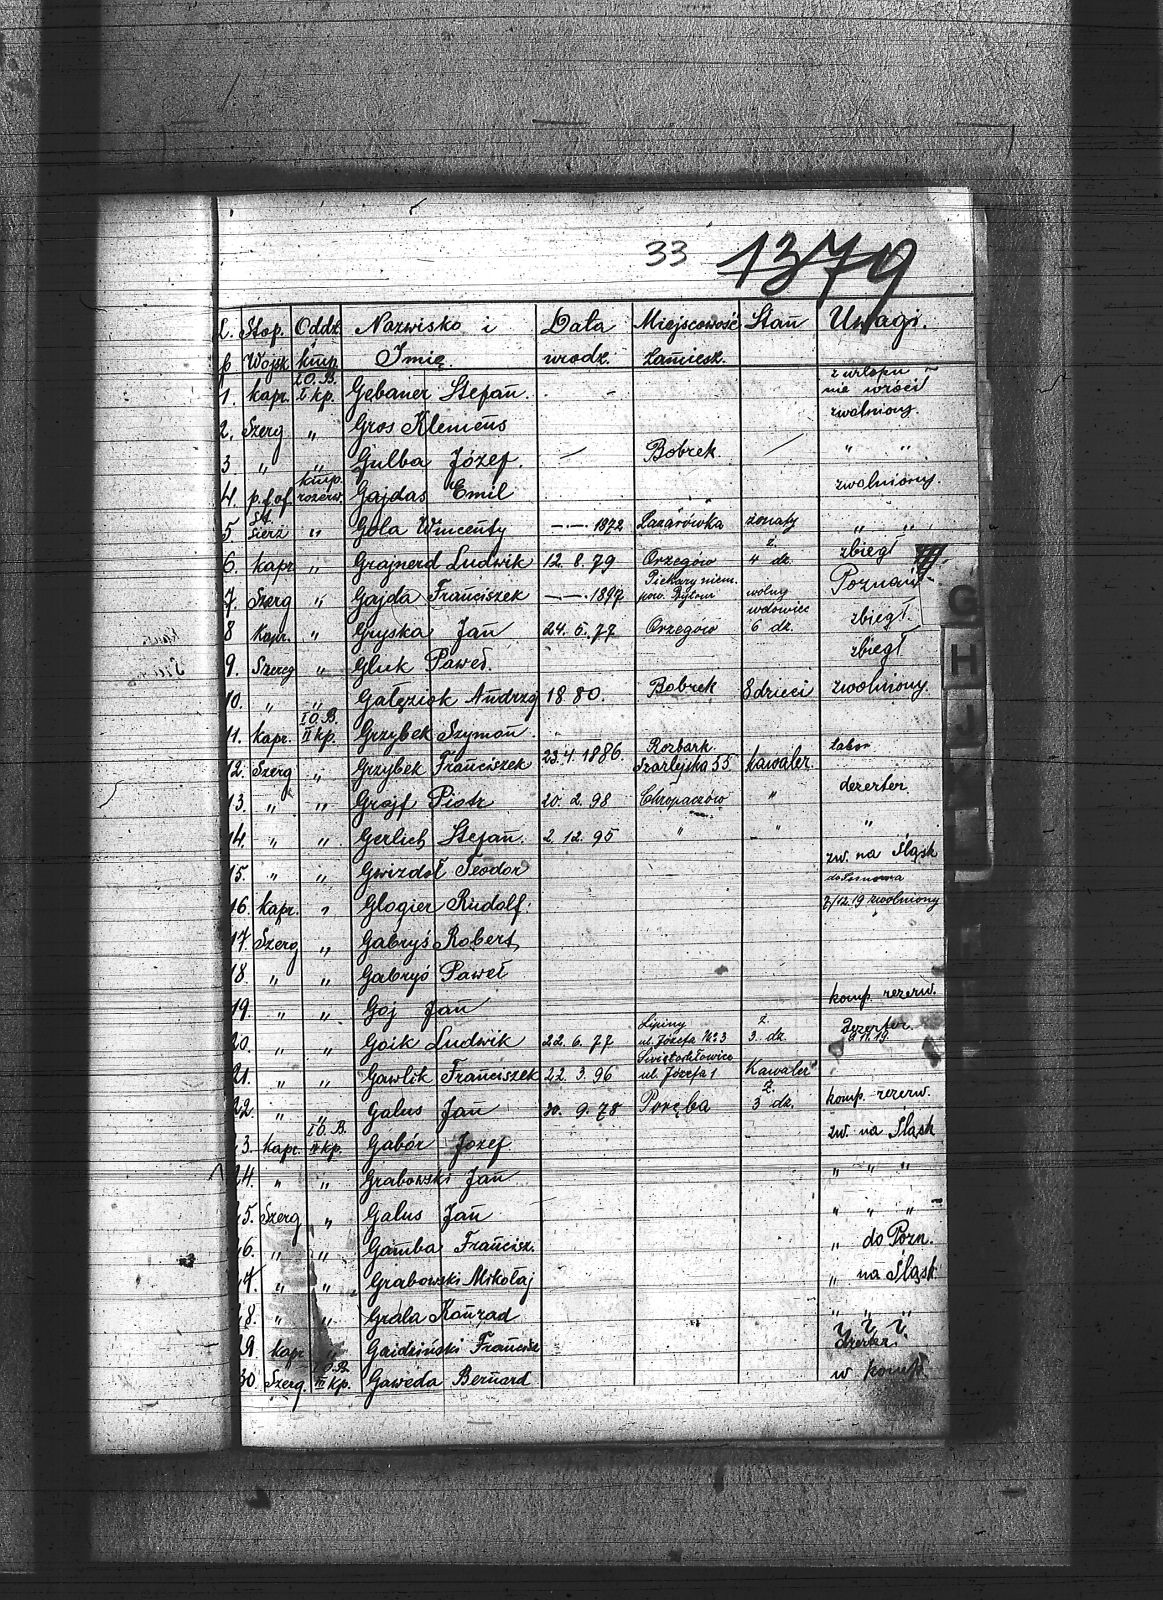 33 1379
L. Stop. Oddz. Nazwisko i Data Miejscowość Stan Uwagi.
p Wojsk kmp. Imię. urodz. Zamiesz.
1. kapr. I O.B. I kp. Gebauer Stefan. - z urlopu nie wrócił
2. Szerg „ Gros Klemens zwolniony.
3 „ „ Gulba Józef. — Bobrek. — „ „
4. p.f.of kmp. rezerw. Gajdas Emil zwolniony.
5 St. sierż „ Gola Wincenty —·— 1872 Lazarówka żonaty „ „
6. kapr „ Grajnerd Ludwik 12. 8. 79 Orzegów ż 4 dz. zbiegł
7. Szerg „ Gajda Franciszek —·— 1897 Piekary niem. pow. Bytom wolny Poznań
8 Kapr. „ Gryska Jan 24. 6. 77 Orzegów wdowiec 6 dz. zbiegł.
9. Szereg „ Gluk Paweł. zbiegł
10. „ „ Gałęziok Andrzej 1880. Bobrek 8 dzieci zwolniony.
11. kapr. I O.B. II kp. Grzybek Szymon
12. Szerg „ Grzybek Franciszek 23.4. 1886. Rozbark. Szarlejska 55 kawaler. tabor
13. „ „ Grajf Piotr 20. 2. 98 Chropaczów „ dezerter.
14. „ „ Gerlich Stefan. 2. 12. 95 „ „ „
15. „ „ Gwizdoł Teodor zw. na Śląsk
16. kapr. „ Glogier Rudolf. 7/12.19 zwolniony
17. Szerg „ Gabryś Robert
18. „ „ Gabryś Paweł
19. „ „ Goj Jan komp. rezerw.
20. „ „ Goik Ludwik 22. 6. 77 Lipiny ul. Józefa № 3 ż. 3. dz. Dezerter.
21. „ „ Gawlik Franciszek 22. 3. 96 Świętochłowice ul. Józefa 1 Kawaler
22 „ „ Galus Jan 30. 9. 78 Poręba ż. 3 dz. komp. rezerw.
3. Kapr. I O.B. II kp. Gabór Józef zw. na Śląsk
24. „ „ Grabowski Jan „ „ „
5. Szerg „ Galus Jan „ „ „
6. „ „ Gamba Francisz. „ do Pozn.
7. „ „ Grabowski Mikołaj „ na Śląsk
8. „ „ Grala Konrad „ „ „
29 kapr „ Gaidziński Francisz ? ? ? dezerter.
30. Szerg. I O.B. III kp. Gaweda Bernard w komp.
G
H
J
K